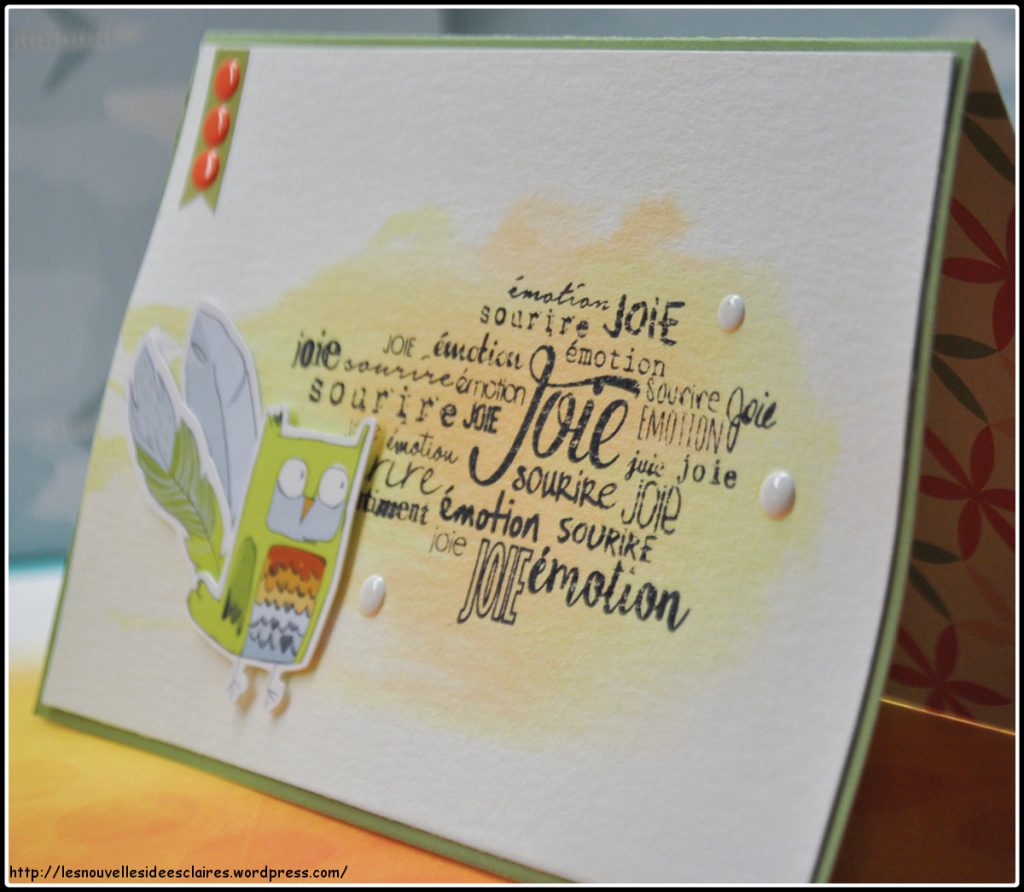 émotion JOIE
sourire
émotion
joie JOIE émotion
sourire émotion Joie sourire Joie
sourire JOIE EMOTION
émotion joie joie
sourire JOIE
émotion SOURIRE
joie JOIE émotion
http://lesnouvellesideesclaires.wordpress.com/